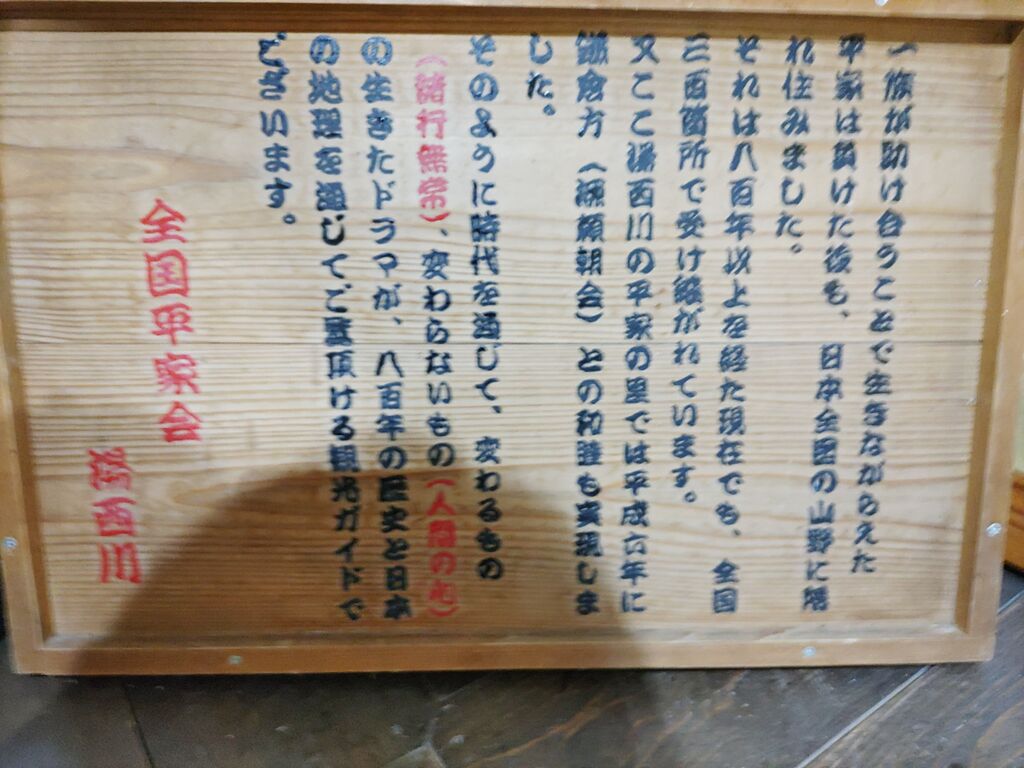 一族が助け合うことで生きながらえた
平家は負けた後も、日本全国の山野に隠
れ住みました。
それは八百年以上を経た現在でも、全国
三百箇所で受け継がれています。
又ここ湯西川の平家の里では平成六年に
鎌倉方（源頼朝会）との和睦も実現しま
した。
そのように時代を通じて、変わるもの
（諸行無常）、変わらないもの（人間の心）
の生きたドラマが、八百年の歴史と日本
の地理を通じてご覧頂ける観光ガイドで
ございます。
全国平家会
湯西川